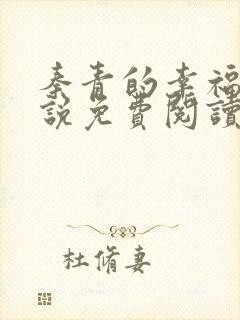 秦青的幸福
說免費閱讀
杜脩妻